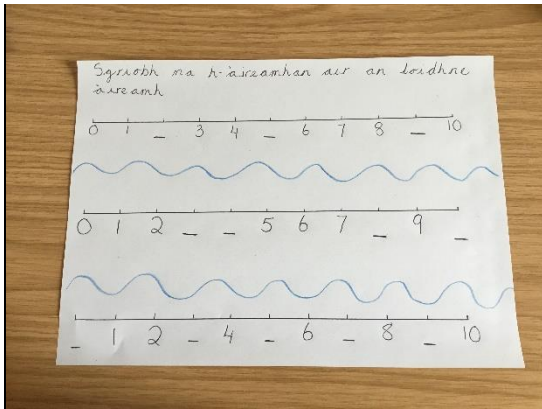 Sgrìobh na h-àireamhan air an loidhne
àireamh
0 1 _ 3 4 _ 6 7 8 _ 10
0 1 2 _ _ 5 6 7 _ 9 _
_ 1 2 _ 4 _ 6 _ 8 _ 10